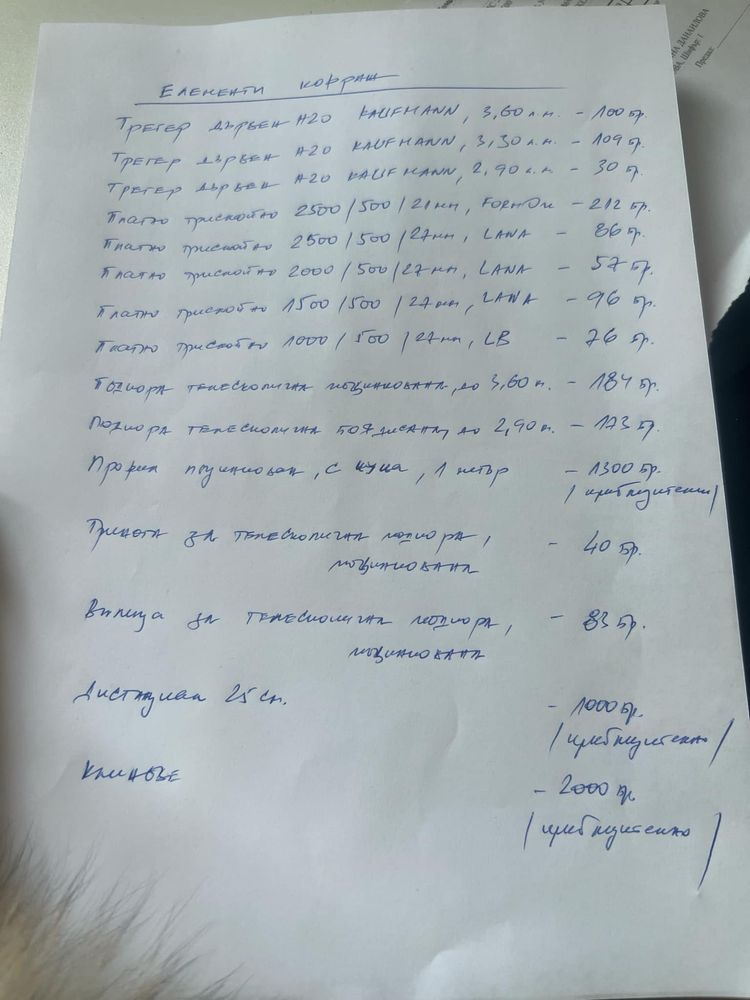 НА ДАНАИЛОВА
Елементи кофраж
Трегер дървен H20 KAUFMANN, 3,60 л.м. - 100 бр.
Трегер дървен H20 KAUFMANN, 3,30 л.м. - 109 бр.
Трегер дървен H20 KAUFMANN, 2,90 л.м. - 30 бр.
Платно трислойно 2500/500/21мм, FORMON - 212 бр.
Платно трислойно 2500/500/27мм, LANA - 86 бр.
Платно трислойно 2000/500/27мм, LANA - 57 бр.
Платно трислойно 1500/500/27мм, LANA - 96 бр.
Платно трислойно 1000/500/27мм, LB - 76 бр.
Подпора телескопична поцинкована, до 3,60 м. - 184 бр.
Подпора телескопична боядисана, до 2,90 м. - 173 бр.
Профил поцинкован, с чупка, 1 метър - 1300 бр.
/приблизително/
Тринога за телескопична подпора, - 40 бр.
поцинкована
Вилица за телескопична подпора, - 83 бр.
поцинкована
Дистанции 25 см. - 1000 бр.
/приблизително/
Клинове - 2000 бр
/приблизително/